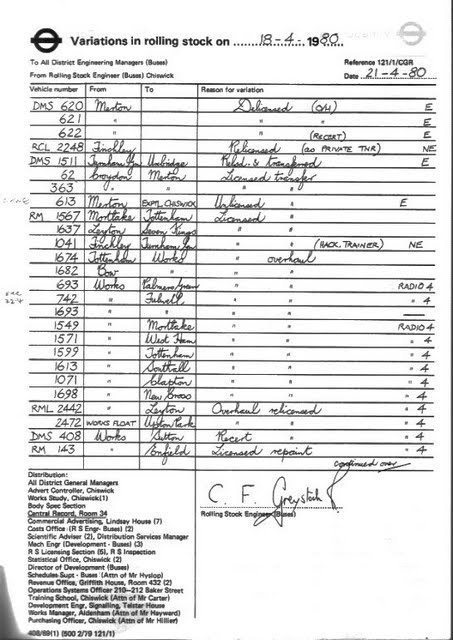 Variations in rolling stock on 18-4-1980
To All District Engineering Managers (Buses) Reference 121/1/CGR
From Rolling Stock Engineer (Buses) Chiswick Date 21-4-80
Vehicle number From To Reason for variation
DMS 620 Merton Delicensed (OH) E
621 " " " E
622 " " (RECERT) E
RCL 2248 Finchley Relicensed (as PRIVATE TNR) NE
DMS 1511 Turnham Gn Uxbridge Relsd. & transferred E
62 Croydon Merton Licensed transfer
363 " " " "
613 Merton EXPTL CHISWICK Unlicensed E
RM 1567 Mortlake Tottenham Licensed "
1637 Leyton Seven Kings " "
1041 Finchley Turnham Gn " " (BACK. TRAINER) NE
1674 Tottenham Works " overhaul
1682 Bow " " "
693 Works Palmers Green " " RADIO 4
742 " Fulwell " " " 4
22.4
1693 " " " " —
1549 " Mortlake " " RADIO 4
1571 " West Ham " " " 4
1599 " Tottenham " " " 4
1613 " Southall " " " 4
1071 " Clapton " " " 4
1698 " New Cross " " " 4
RML 2442 " Leyton Overhaul relicensed " 4
2472 WORKS FLOAT Upton Park " " " 4
DMS 408 Works Sutton Recert "
RM 143 " Enfield Licensed repaint " 4
continued over
Distribution:
All District General Managers
Advert Controller, Chiswick
Works Study, Chiswick(1)
Body Spec Section
Central Record, Room 34
Commercial Advertising, Lindsay House (7)
Costs Office (R S Engr- Buses) (2)
Scientific Adviser (2), Distribution Services Manager
Mech Engr (Development - Buses) (3)
R S Licensing Section (5), R S Inspection
Statistical Office, Chiswick (2)
Director of Development (Buses)
Schedules Supt - Buses (Attn of Mr Hyslop)
Revenue Office, Griffith House, Room 432 (2)
Operations Systems Officer 210-212 Baker Street
Training School, Chiswick (Attn of Mr Carter)
Development Engr, Signalling, Telstar House
Works Manager, Aldenham (Attn of Mr Hayward)
Purchasing Officer, Chiswick (Attn of Mr Hillier)
C. F. Greystock
Rolling Stock Engineer (Buses)
408/69(1) (500 2/79 121/1)